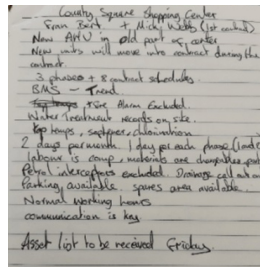 Country Square Shopping Center
Fran Bert + Michael Webb (1st contact)
New AHU in old part of center
New units will move into contract during the
contract.
3 phases + 8 contract schedules
BMS - Trend
Fire Alarm Excluded.
Water Treatment records on site.
temps, chlorination
2 days per month 1 day per each phase
labour is comp, materials are chargeable
Petrol interceptors excluded. Drainage call out
Parking available. spares area available.
Normal working hours
communication is key
Asset list to be received Friday.